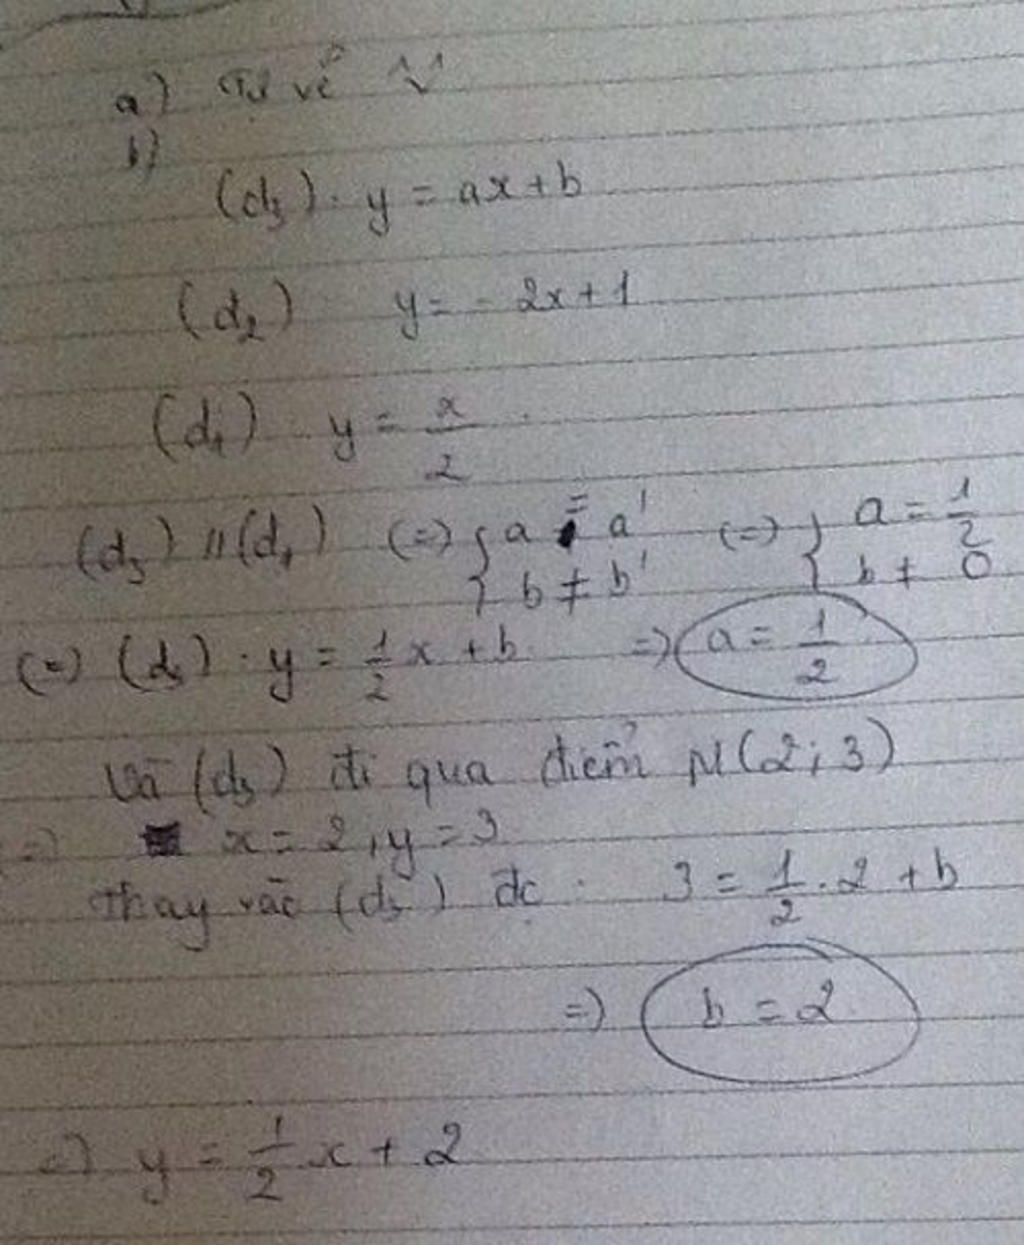 a) Tự vẽ
b)
(d₃): y = ax + b
(d₂) y = -2x + 1
(d₁) y = x/2
(d₃) // (d₁) (=) { a = a' (=) { a = 1/2
{ b ≠ b' { b ≠ 0
(=) (d₃): y = 1/2 x + b =) a = 1/2
Và (d₃) đi qua điểm M(2; 3)
=) x = 2, y = 3
thay vào (d₃) đc: 3 = 1/2 . 2 + b
=) b = 2
=) y = 1/2 x + 2